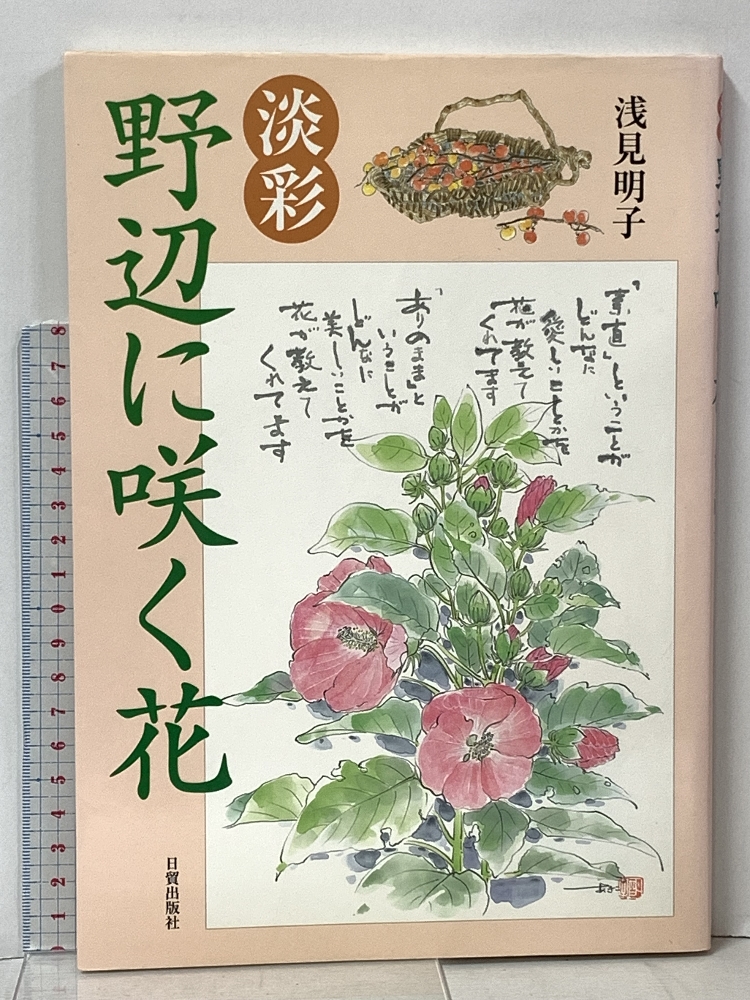 淡彩
野辺に咲く花
浅見明子
「素直」ということが
どんなに
愛しいことかを
花が教えて
くれてます
「ありのまま」と
いうことが
どんなに
美しいことかを
花が教えて
くれてます
日貿出版社
8
7
6
5
4
3
2
1
0
9
8
7
6
5
4
3
2
1